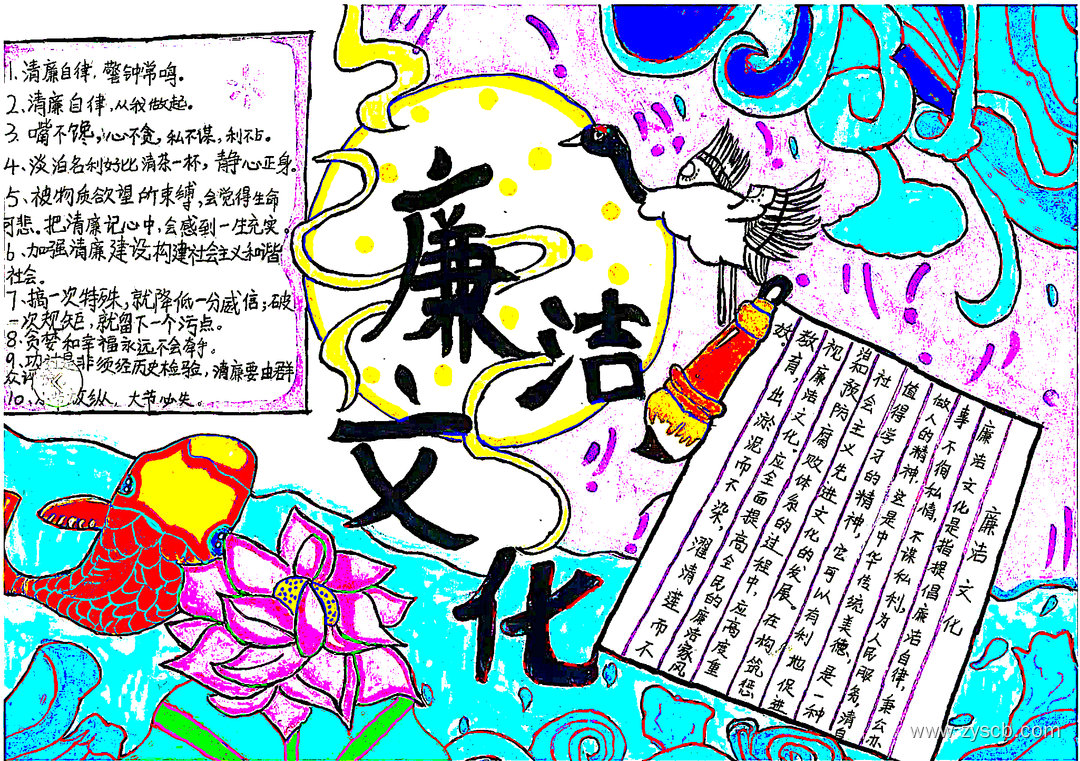 1、清廉自律，警钟常鸣。
2、清廉自律，从我做起。
3、嘴不馋，心不贪，私不谋，利不占。
4、淡泊名利好比清茶一杯，静心正身。
5、被物质欲望的束缚，会觉得生命
可悲。把清廉记心中，会感到一生充实。
6、加强清廉建设，构建社会主义和谐
社会。
7、搞一次特殊，就降低一分威信；破
一次规矩，就留下一个污点。
8、贪婪和幸福永远不会牵手。
9、功过是非须经历史检验，清廉要由群
众评
10、放纵，大节必失。
廉洁文化
廉洁文化
廉洁文化是指提倡廉洁自律，秉公办
事，不徇私情，不谋私利，为人民服务，清白
做人的精神，这是中华传统美德，是一种
值得学习的精神，它可以有利地促进
社会主义先进文化的发展。在构筑惩
治和预防腐败体系的过程中，应高度重
视廉洁文化。应全面提高全民的廉洁家风
教育，出淤泥而不染，濯清莲而不
妖。
www.zyscb.com